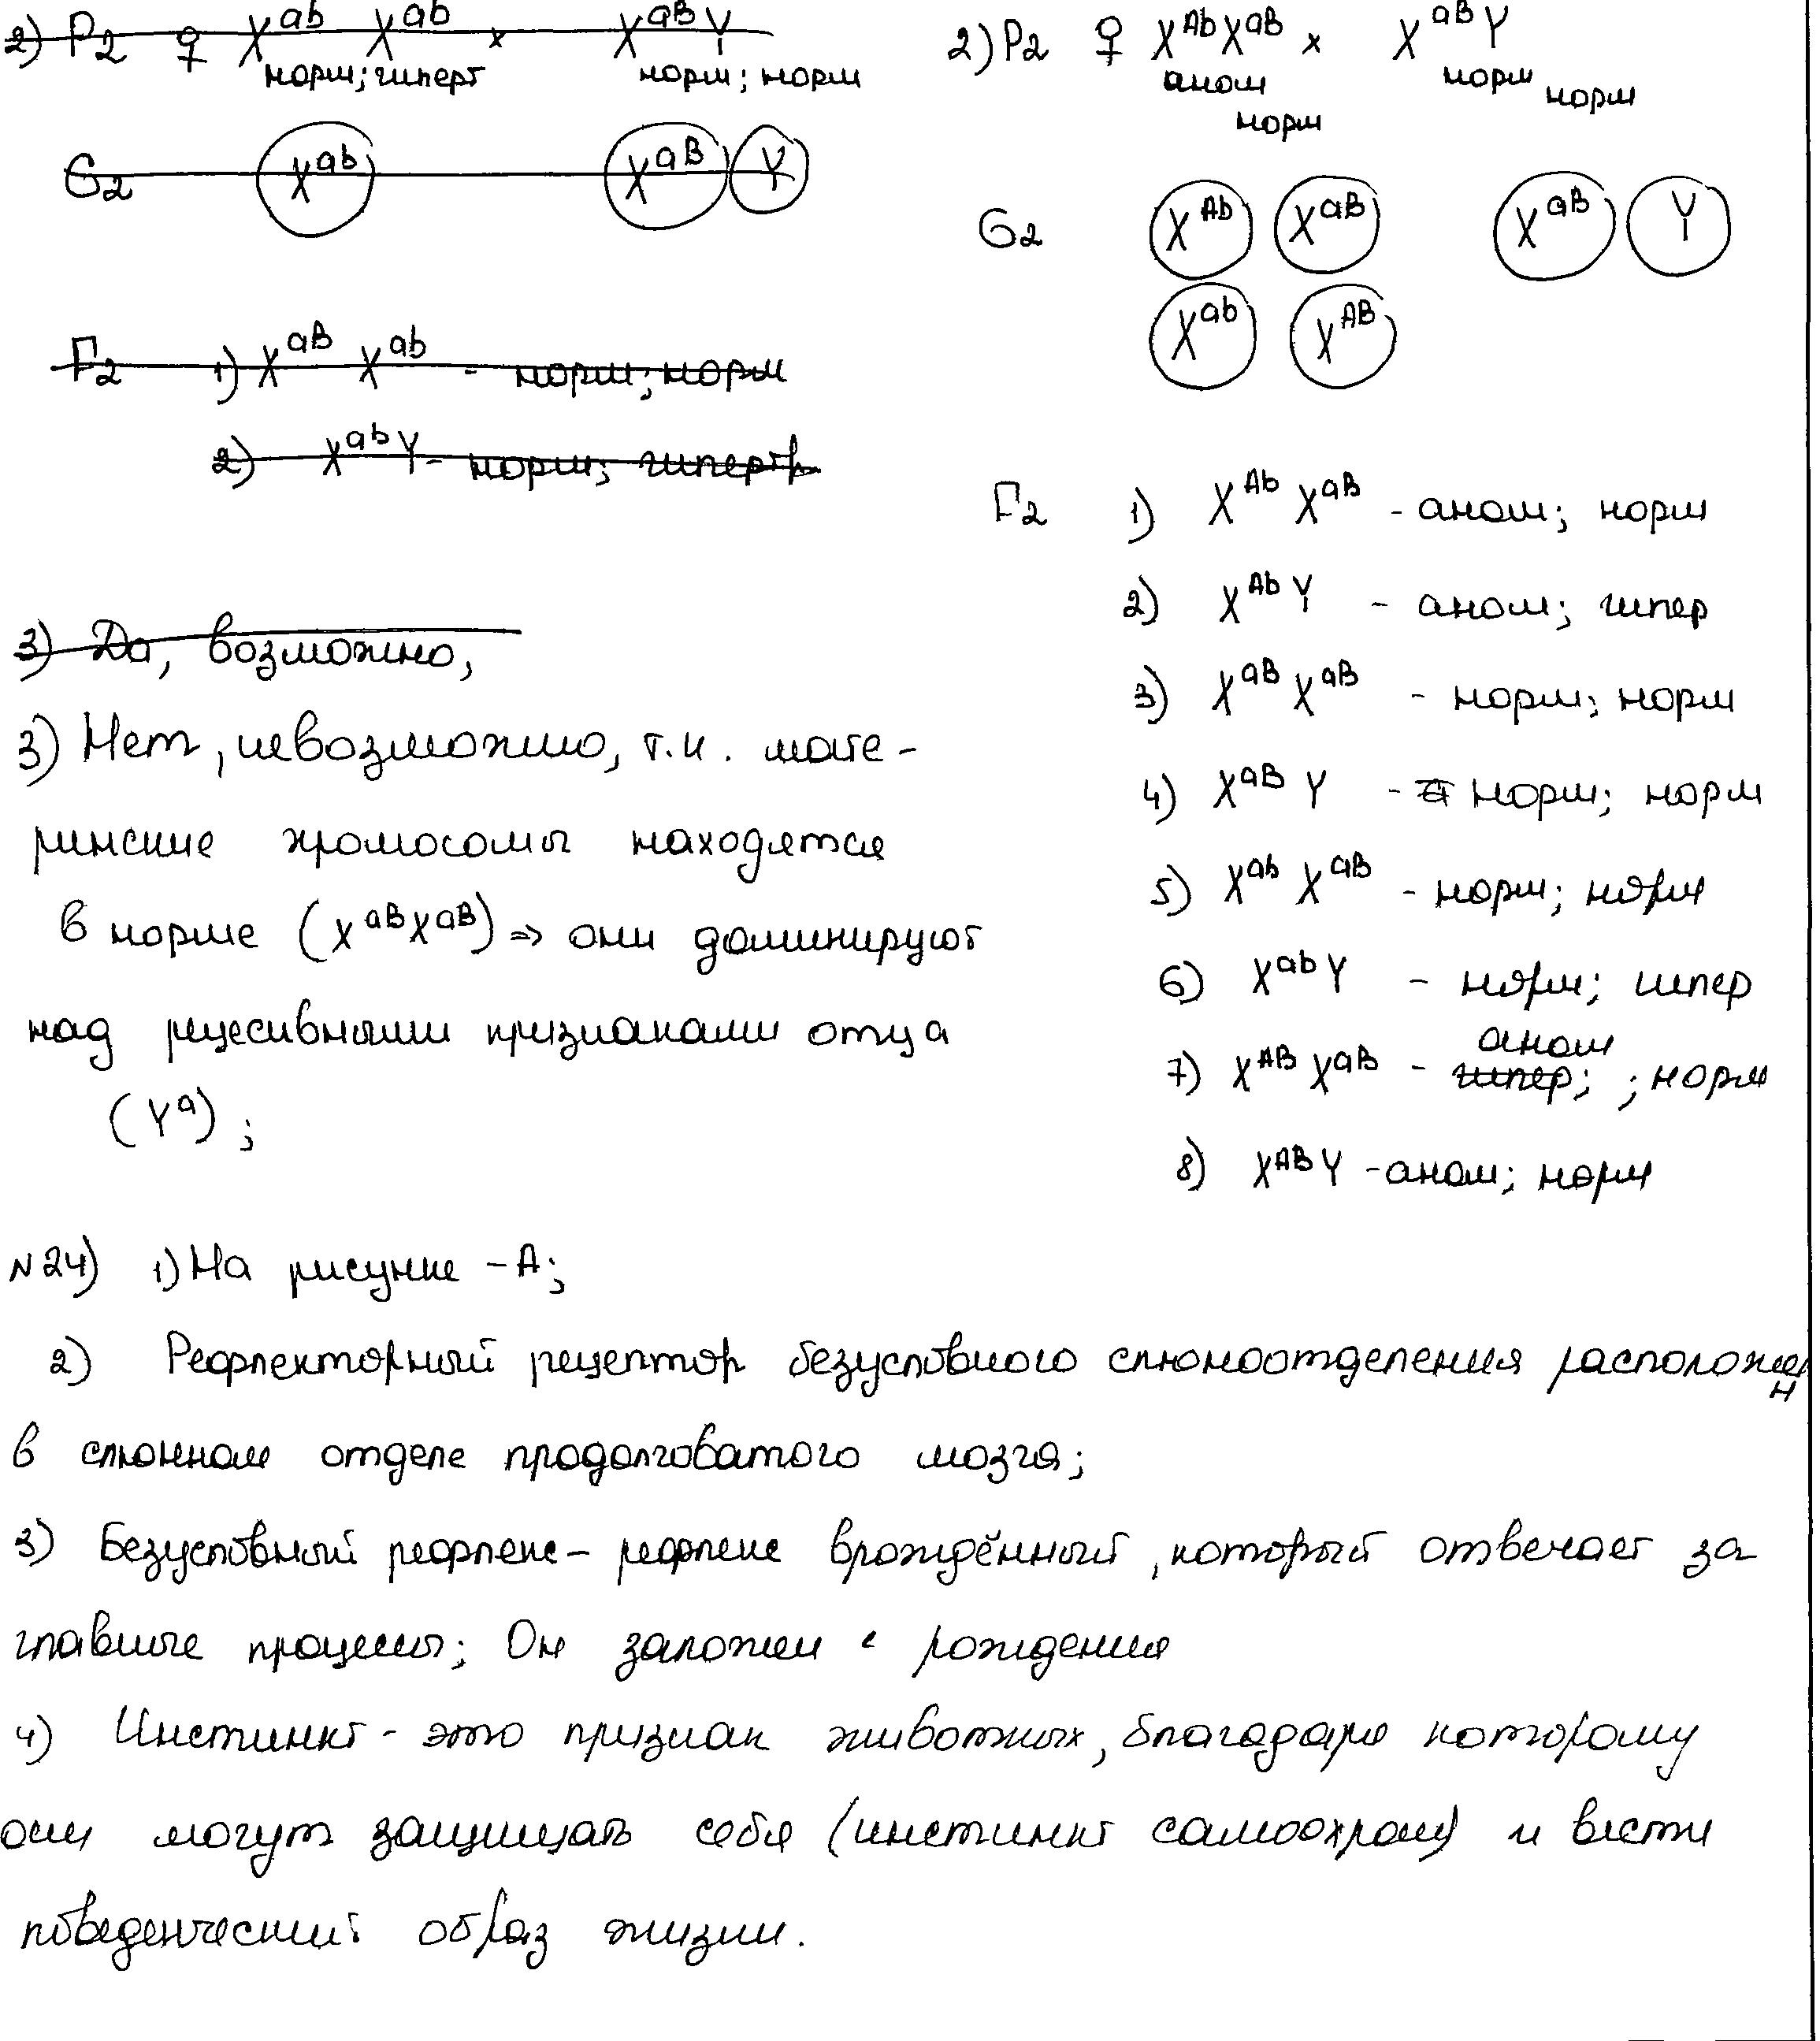 2) P2 ♀ X^ab X^ab × X^aB Y
норм; гиперт норм; норм
G2 X^ab X^aB Y
F2 1) X^aB X^ab - норм; норм
2) X^ab Y - норм; гипертр
3) Да, возможно,
3) Нет, невозможно, т.к. мате-
ринские хромосомы находятся
в норме (X^aB X^aB) => они доминируют
над рецесивными признаками отца
(Y^a);
2) P2 ♀ X^Ab X^aB × X^aB Y
аном норм
норм норм
G2 X^Ab X^aB X^aB Y
X^ab X^AB
F2 1) X^Ab X^aB - аном; норм
2) X^Ab Y - аном; гипер
3) X^aB X^aB - норм; норм
4) X^aB Y - норм; норм
5) X^ab X^aB - норм; норм
6) X^ab Y - норм; гипер
аном
7) X^AB X^aB - гипер; ; норм
8) X^AB Y - аном; норм
N24) 1) На рисунке - А;
2) Рефлекторный рецептор безусловного слюноотделения расположен
в слюнном отделе продолговатого мозга;
3) Безусловный рефлекс - рефлекс врождённый, который отвечает за
главные процессы; Он заложен с рождения
4) Инстинкт - это признак животных, благодаря которому
они могут защищать себя (инстинкт самоохраны) и вести
поведенческий образ жизни.